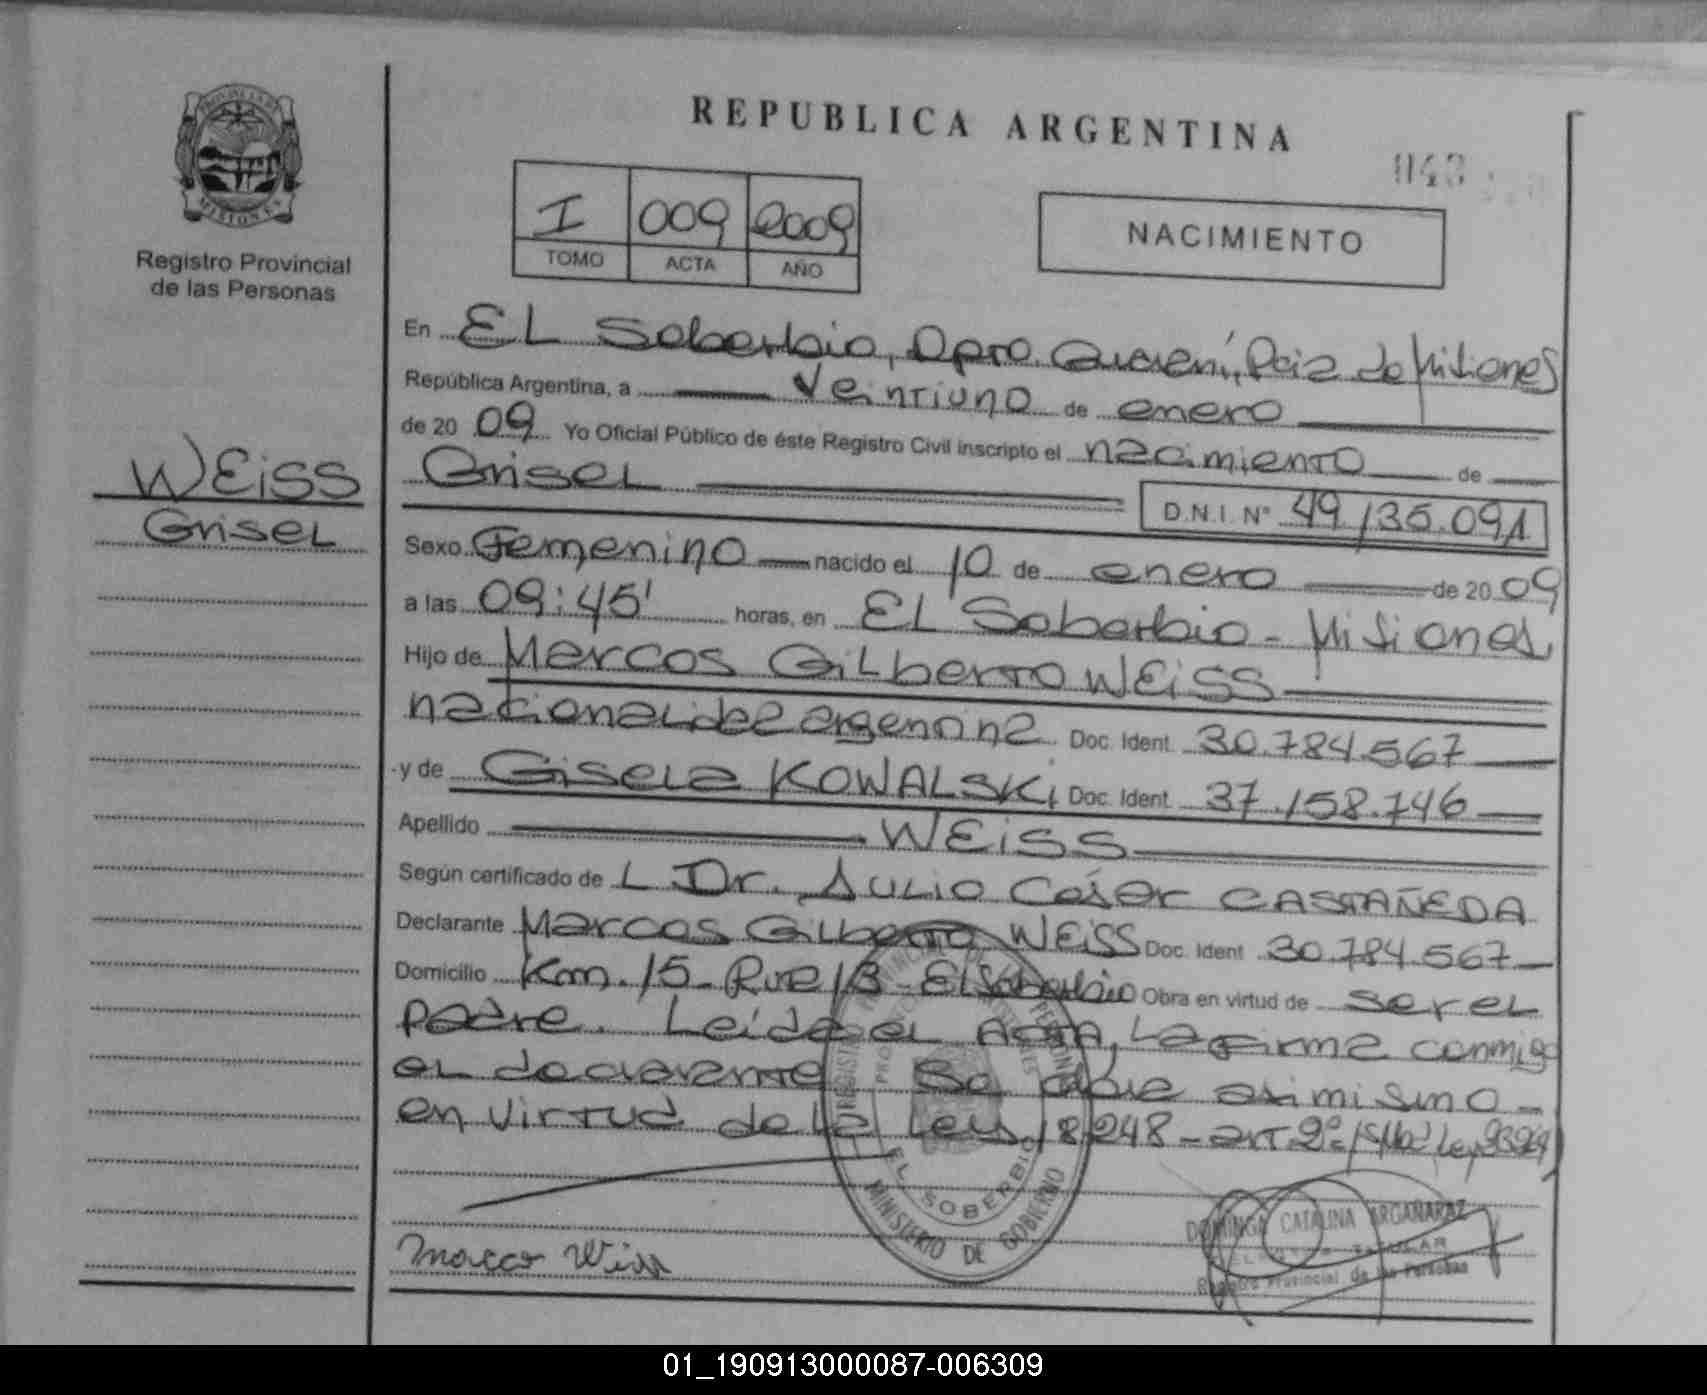 REPUBLICA ARGENTINA
PROVINCIA DE MISIONES
Registro Provincial
de las Personas
043
I 009 2009
TOMO ACTA AÑO
NACIMIENTO
En EL Soberbio, Dpto. Guaraní, Pcia de Misiones
República Argentina, a veintiuno de enero
de 20 09 Yo Oficial Público de éste Registro Civil inscripto el nacimiento de
WEISS
Grisel
Grisel
D.N.I. N° 49.135.091
Sexo Femenino nacido el 10 de enero de 20 09
a las 09:45' horas, en EL Soberbio - Misiones
Hijo de Marcos Gilberto WEISS
nacionalidad argentina Doc. Ident. 30.784.567
y de Gisela KOWALSKI Doc. Ident. 37.158.746
Apellido WEISS
Según certificado de L Dr. Julio César CASTAÑEDA
Declarante Marcos Gilberto WEISS Doc. Ident. 30.784.567
Domicilio Km. 15 - Ruta 13 - El Soberbio Obra en virtud de ser el
padre. Leída el Acta, La firma conmigo
el declarante. Se asimismo -
en virtud de la Ley 18.248 - art. 2°
REGISTRO PROVINCIAL DE LAS PERSONAS
EL SOBERBIO
MINISTERIO DE GOBIERNO
Marcos Weiss
DOMINGA CATALINA ARGAÑARAZ
Registro Provincial de las Personas
01_190913000087-006309